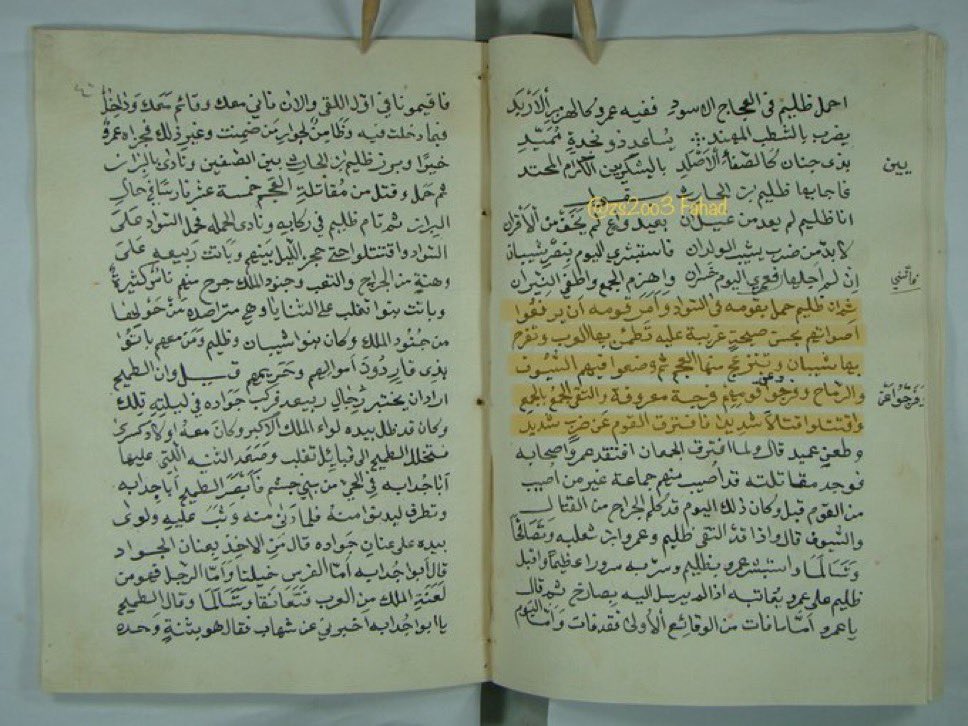 احمل ظليم فى العجاج الاسود ففيه عمرو كالهزبر الأربد
يضرب بالشطب المهند يساعد ذو نجدة
بذى جنان كالصفاة الاصلد باليشكريين الكرام المحتد
فاجابها ظليم بن الحارث
@zs2oo3 Fahad
انا ظليم لم يعد من
لا بدّ من ضرب يشيب الولدان فاستبشرى اليوم بنصر شيبان
إن لم اجلها فعمرى اليوم واهزم الجمع واطفى النيران
ثم ان ظليم حمل بقومه فى السواد وأمر قومه أن يرفعوا
اصواتهم بحسن صيحة عربية عليه تطمئن بها العرب وتفرح
بها شيبان وتنزعج منها العجم ثم وضعوا فيهم السيوف
والرماح وفرجوا عن قومهم فرجة معروفة والتقى الجمع بالجمع
واقتتلوا قتالا شديدا فافترق القوم عن ضرب شديد
وطعن عميد قال ولما افترق الجمعان افتقد عمرو اصحابه
فوجد مقاتلته قد أصيب منهم جماعة غير من أصيب
من القوم قبل وكان ذلك اليوم قد كلم الجراح من القتال
والسيوف قال واذا قد التقى ظليم وعمرو ابن ثعلبه وتصافحا
وتسالما واستبشر عمرو بظليم وسرّ به سرورا عظيما واقبل
ظليم على عمرو يعاتبه اذ لم يرسل اليه بصارخ ثم قال
يا عمرو أمّا ما فات من الوقائع الأولى فقد فات وأمّا اليوم
فاقيمونا فى اول اللقى والان فانى معك وقائم
فبما دخلت فيه من الجوار من ضميت وغير ذلك فجزاه عمرو
خيرًا وبرز ظليم بن الحارث بين الصفين ونادى بالبراز
ثم حمل وقتل من مقاتلة العجم خمسة عشر فارسًا فى حال
البراز ثم قام ظليم فى ركابه ونادى الحمله فحمل السواد على
السواد واقتتلوا حتى حجز الليل بينهم وباتت ربيعه على
وهنة من الجراح والتعب وجنود الملك جرح منهم ناس كثير
وباتت بنوا تغلب على الثنايا وهى متراصده من حولها
من جنود الملك وكان بنوا شيبان وظليم ومن معهم باتوا
بذى قار ردود اموالهم وحريمهم قبل وان الطميح
اراد ان يختبر رجال ربيعه فركب جواده فى ليلته تلك
وكان قد ظل بيده لواء الملك الأكبر وكان معه اولاد كسرى
فتخلل الطميح الى قبائل تغلب وصعد الثنيه اللتى عليها
أبا جدابه فى الحى من بنى جشم فأبصر الطميح أبا جدابه
وتطرف ليدنو منه فلما دنى منه وثب عليه ولوى
بيده على عنان جواده قال من الاخذ بعنان الجواد
قال أبوا جدابه أمّا الفرس خيلنا وأمّا الرجل فهو من
لعنة الملك من العرب فتعانقا وتسالما وقال الطميح
يا ابوا جدابه أخبرنى عن شهاب فقال هو بثنية وحده